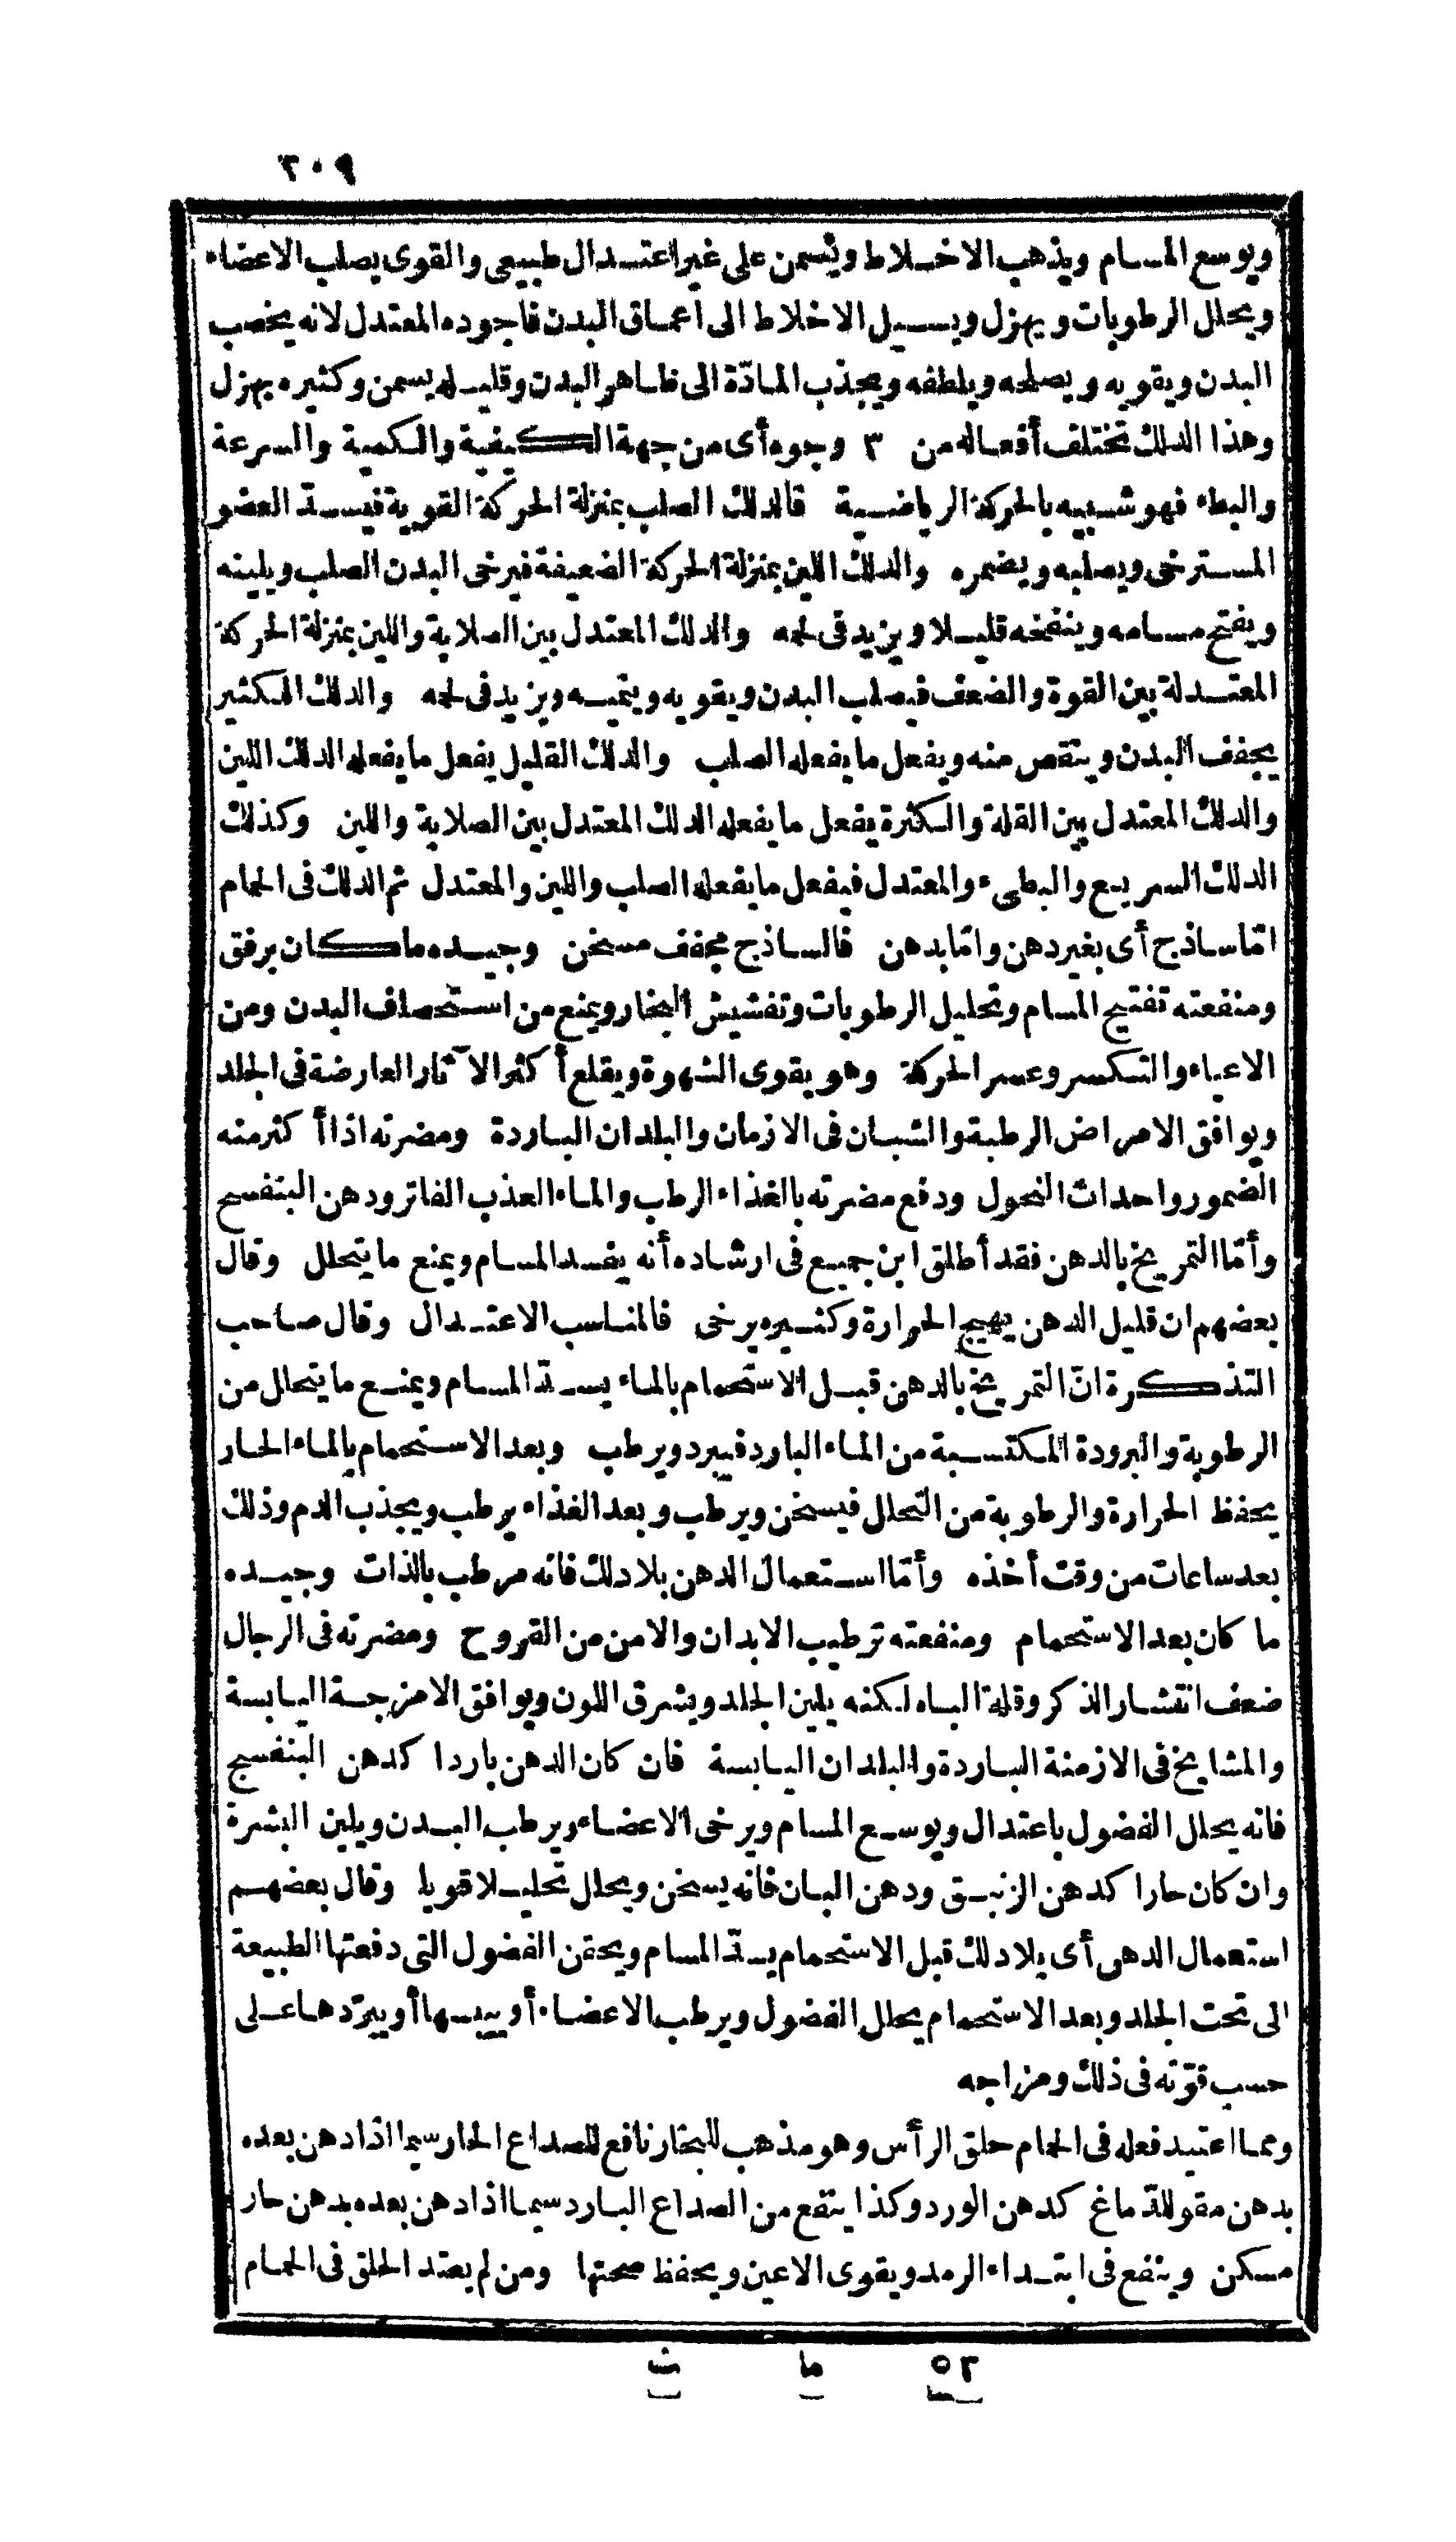 ٣٠٩
ويوسع المسام ويذهب الاخلاط ويسمن على غير اعتدال طبيعى والقوى يصلب الاعضاء
ويحلل الرطوبات ويهزل ويسيل الاخلاط الى اعماق البدن فاجوده المعتدل لانه يخصب
البدن ويقويه ويصلحه ويلطفه ويجذب المادّة الى ظاهر البدن وقليله يسمن وكثيره يهزل
وهذا الدلك تختلف أفعاله من ٣ وجوه أى من جهة الكيفية والكمية والسرعة
والبطء فهو شبيه بالحركة الرياضية فالدلك الصلب بمنزلة الحركة القوية فيسدّ العضو
المسترخى ويصلبه ويضمره والدلك اللين بمنزلة الحركة الضعيفة فيرخى البدن الصلب ويلينه
ويفتح مسامه وينفخه قليلا ويزيد فى لحمه والدلك المعتدل بين الصلابة واللين بمنزلة الحركة
المعتدلة بين القوة والضعف فيصلب البدن ويقويه وينميه ويزيد فى لحمه والدلك الكثير
يجفف البدن وينقص منه ويفعل ما يفعله الصلب والدلك القليل يفعل ما يفعله الدلك اللين
والدلك المعتدل بين القلة والكثرة يفعل ما يفعله الدلك المعتدل بين الصلابة واللين وكذلك
الدلك السريع والبطىء والمعتدل فيفعل ما يفعله الصلب واللين والمعتدل ثم الدلك فى الحمام
امّا ساذج أى بغير دهن وامّا بدهن فالساذج مجفف مسخن وجيده ما كان برفق
ومنفعته تفتيح المسام وتحليل الرطوبات وتفشيش البخار ويمنع من استحصاف البدن ومن
الاعياء والتكسر وعسر الحركة وهو يقوى الشهوة ويقلع أكثر الآثار العارضة فى الجلد
ويوافق الامراض الرطبة والشبان فى الازمان والبلدان الباردة ومضرته اذا أكثر منه
الضمور واحداث النحول ودفع مضرته بالغذاء الرطب والماء العذب الفاتر ودهن البنفسج
وأمّا التمريخ بالدهن فقد أطلق ابن جميع فى ارشاده أنه يفسد المسام ويمنع ما يتحلل وقال
بعضهم ان قليل الدهن يهيج الحرارة وكثيره يرخى فالمناسب الاعتدال وقال صاحب
التذكرة انّ التمريخ بالدهن قبل الاستحمام بالماء يسدّ المسام ويمنع ما يتحلل من
الرطوبة والبرودة المكتسبة من الماء البارد فيبرد ويرطب وبعد الاستحمام بالماء الحار
يحفظ الحرارة والرطوبة من التحلل فيسخن ويرطب وبعد الغذاء يرطب ويجذب الدم وذلك
بعد ساعات من وقت أخذه وأمّا استعمال الدهن بلا دلك فانه مرطب بالذات وجيده
ما كان بعد الاستحمام ومنفعته ترطيب الابدان والامن من القروح ومضرته فى الرجال
ضعف انتشار الذكر وقلة الباه لكنه يلين الجلد ويشرق اللون ويوافق الامزجة اليابسة
والمشايخ فى الازمنة الباردة والبلدان اليابسة فان كان الدهن باردا كدهن البنفسج
فانه يحلل الفضول باعتدال ويوسع المسام ويرخى الاعضاء ويرطب البدن ويلين البشرة
وان كان حارا كدهن الزنبق ودهن البان فانه يسخن ويحلل تحليلا قويا وقال بعضهم
استعمال الدهن أى بلا دلك قبل الاستحمام يسدّ المسام ويحقن الفضول التى دفعتها الطبيعة
الى تحت الجلد وبعد الاستحمام يحلل الفضول ويرطب الاعضاء أو ييبسها أو يبرّدها على
حسب قوّته فى ذلك ومزاجه
ومما اعتيد فعله فى الحمام حلق الرأس وهو مذهب للبخار نافع للصداع الحار سيما اذا دهن بعده
بدهن مقو للدماغ كدهن الورد وكذا ينفع من الصداع البارد سيما اذا دهن بعده بدهن حار
مسكن وينفع فى ابتداء الرمد ويقوى الاعين ويحفظ صحتها ومن لم يعتد الحلق فى الحمام
٥٢ ما ث